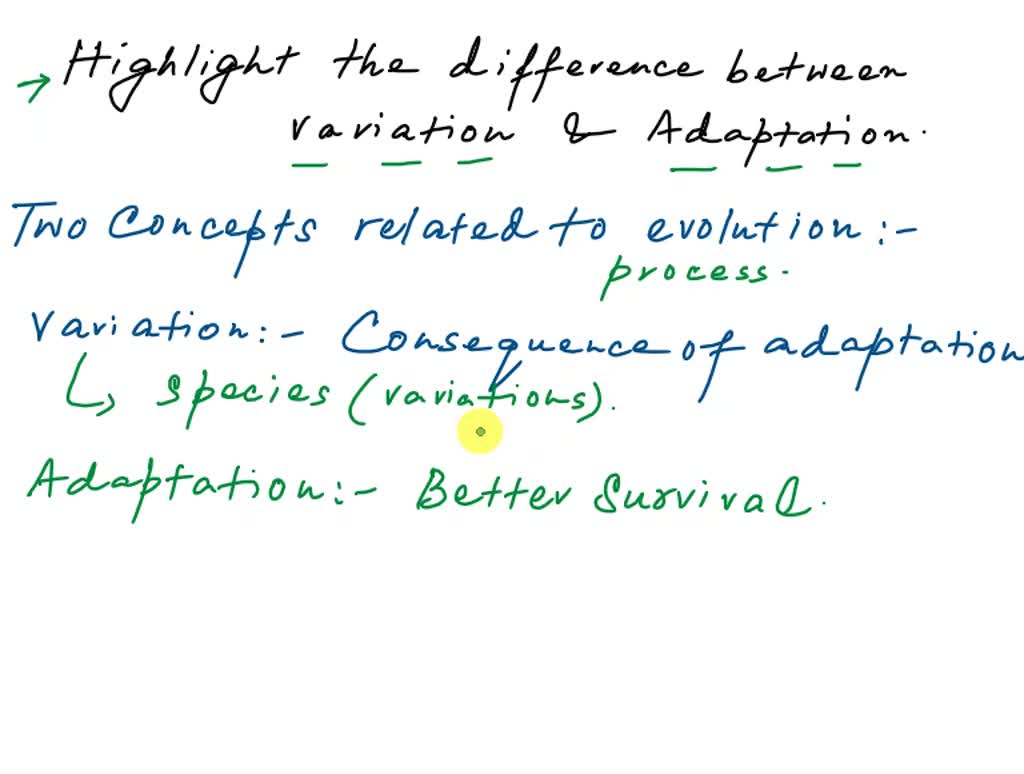 → Highlight the difference between
variation & Adaptation.
Two Concepts related to evolution :-
process.
Variation :- Consequence of adaptation
↳ species (variations).
Adaptation :- Better Survival.